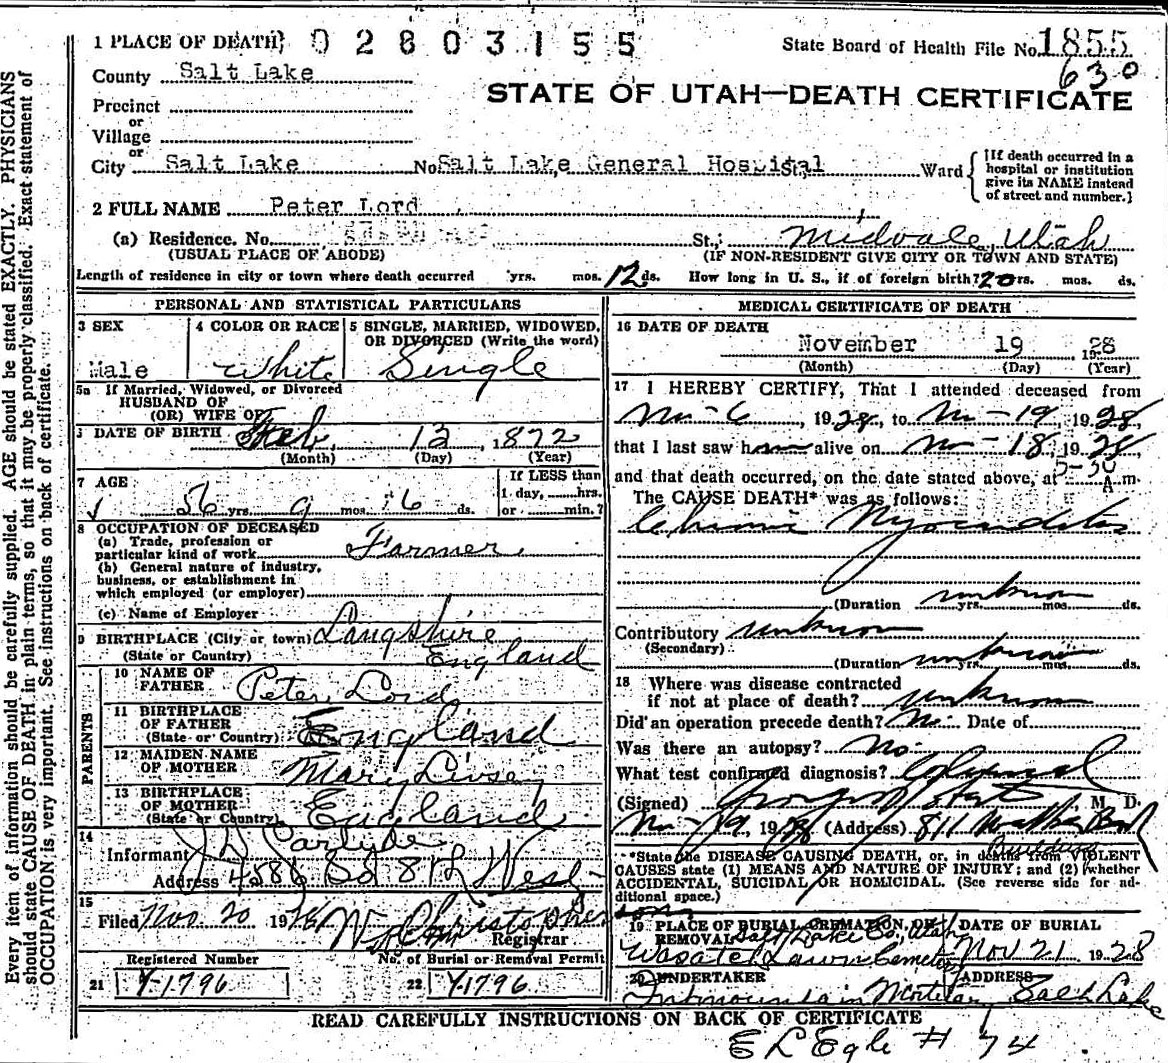 1 PLACE OF DEATH 02803155 State Board of Health File No. 1855
630
County Salt Lake
STATE OF UTAH—DEATH CERTIFICATE
Precinct
or
Village
or
City Salt Lake No. Salt Lake General Hospital St., Ward
[If death occurred in a
hospital or institution
give its NAME instead
of street and number.]
2 FULL NAME Peter Lord
(a) Residence. No. St., Midvale, Utah
(USUAL PLACE OF ABODE) (IF NON-RESIDENT GIVE CITY OR TOWN AND STATE)
Length of residence in city or town where death occurred yrs. mos. 12 ds. How long in U. S., if of foreign birth? 20 yrs. mos. ds.
PERSONAL AND STATISTICAL PARTICULARS
3 SEX
Male
4 COLOR OR RACE
White
5 SINGLE, MARRIED, WIDOWED,
OR DIVORCED (Write the word)
Single
5a If Married, Widowed, or Divorced
HUSBAND OF
(OR) WIFE OF
DATE OF BIRTH Feb. 13, 1872
(Month) (Day) (Year)
7 AGE
56 yrs. 9 mos. 6 ds.
If LESS than
1 day, hrs.
or min.?
8 OCCUPATION OF DECEASED
(a) Trade, profession or
particular kind of work Farmer
(b) General nature of industry,
business, or establishment in
which employed (or employer)
(c) Name of Employer
9 BIRTHPLACE (City or town) Langshire
(State or Country) England
PARENTS
10 NAME OF
FATHER Peter Lord
11 BIRTHPLACE
OF FATHER
(State or Country) England
12 MAIDEN NAME
OF MOTHER Mary Livsey
13 BIRTHPLACE
OF MOTHER
(State or Country) England
14
Informant J D Carlyle
Address 4586 So 8th West
15
Filed Nov. 20 1928
Registrar
Registered Number No. of Burial or Removal Permit
21 Y-1796 22 Y-1796
MEDICAL CERTIFICATE OF DEATH
16 DATE OF DEATH
November 19 1928
(Month) (Day) (Year)
17 I HEREBY CERTIFY, That I attended deceased from
Nov - 6, 1928, to Nov - 19, 1928
that I last saw him alive on Nov - 18, 1928
and that death occurred, on the date stated above, at 5-30 A m.
The CAUSE DEATH* was as follows:
Chronic Myocarditis
(Duration unknown yrs. mos. ds.
Contributory unknown
(Secondary)
(Duration unknown yrs. mos. ds.
18 Where was disease contracted
if not at place of death? unknown
Did an operation precede death? No. Date of
Was there an autopsy? No.
What test confirmed diagnosis? Clinical
(Signed) M D.
Nov - 19, 1928 (Address) 811 Walker Bank
Building
*State the DISEASE CAUSING DEATH, or, in deaths from VIOLENT
CAUSES state (1) MEANS AND NATURE OF INJURY; and (2) whether
ACCIDENTAL, SUICIDAL OR HOMICIDAL. (See reverse side for ad-
ditional space.)
19 PLACE OF BURIAL CREMATION, OR DATE OF BURIAL
REMOVAL Salt Lake Co., Utah
Wasatch Lawn Cemetery Nov 21 1928
20 UNDERTAKER ADDRESS
Intermountain Mortuary, Salt Lake
READ CAREFULLY INSTRUCTIONS ON BACK OF CERTIFICATE
E L Egle # 74
Every item of information should be carefully supplied. AGE should be stated EXACTLY. PHYSICIANS
should state CAUSE OF DEATH in plain terms, so that it may be properly classified. Exact statement of
OCCUPATION is very important. See instructions on back of certificate.